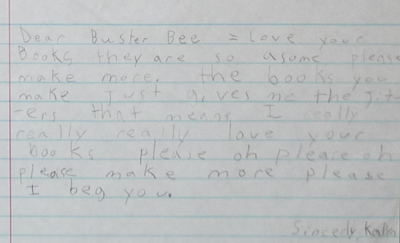 Dear Buster Bee = love your
Books they are so asome please
make more. the books you
make Just gives me the Jit-
ers that means I really
really really love your
books please oh please oh
please make more please
I beg you.
Sincedy,